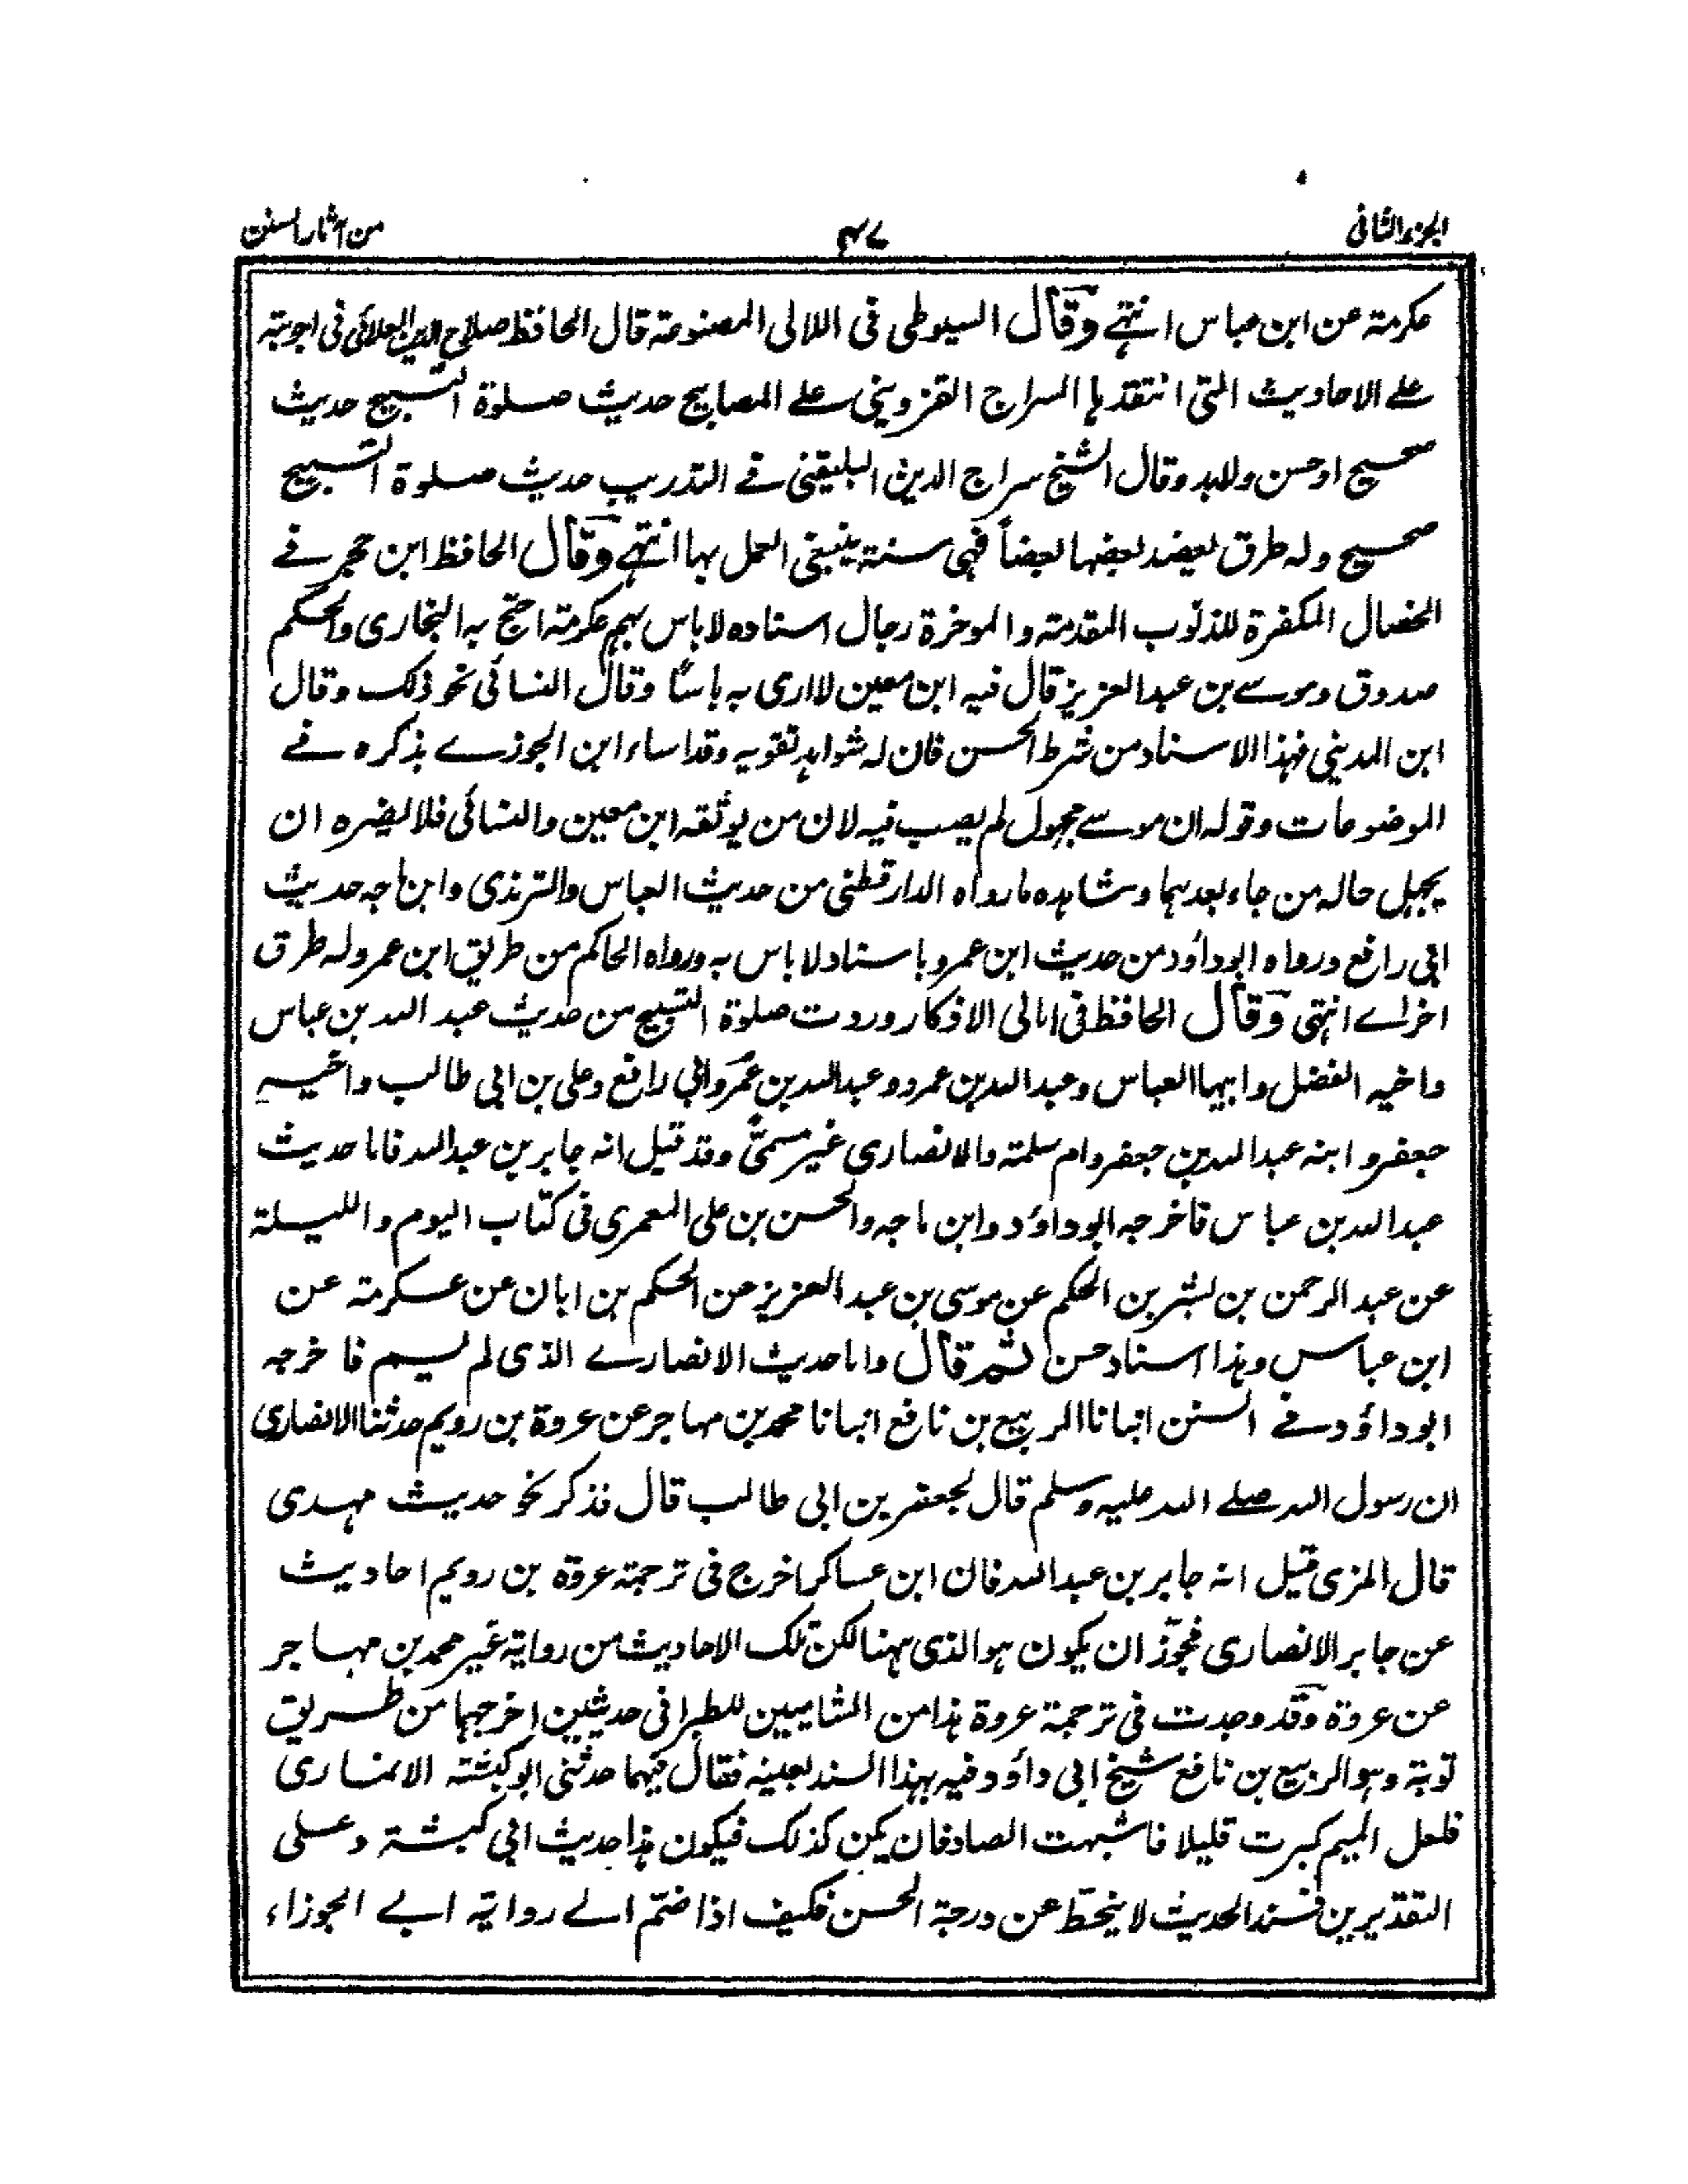 الجزء الثانى
٤٧
من آثار السنن
عكرمة عن ابن عباس انتهے وقال السيوطى فى اللالى المصنوعة قال الحافظ صلاح الدين العلائى فى اجوبته
علے الاحاديث التى انتقدها السراج القزوينى علے المصابيح حديث صلوة التسبيح حديث
صحيح او حسن ولابد وقال الشيخ سراج الدين البلقينى فے التدريب حديث صلوة التسبيح
صحيح وله طرق يعضد بعضها بعضاً فهى سنة ينبغى العمل بها انتهے وقال الحافظ ابن حجر فے
الخصال المكفرة للذنوب المقدمة والموخرة رجال اسناده لا باس بهم عكرمة احتج به البخارى والحكم
صدوق وموسے بن عبد العزيز قال فيه ابن معين لا ارى به باسًا وقال النسائى نحو ذلك وقال
ابن المدينى فهذا الاسناد من شرط الحسن فان له شواهد تقويه وقد اساء ابن الجوزے بذكره فے
الموضوعات وقوله ان موسے مجهول لم يصب فيه لان من يوثقه ابن معين والنسائى فلا يضره ان
يجهل حاله من جاء بعدهما وشاهده ما رواه الدارقطنى من حديث العباس والترمذى وابن ماجه حديث
ابى رافع ورواه ابوداؤد من حديث ابن عمرو باسناد لا باس به ورواه الحاكم من طريق ابن عمر وله طرق
اخرے انتهى وقال الحافظ فى امالى الاذكار وردت صلوة التسبيح من حديث عبد الله بن عباس
واخيه الفضل وابيهما العباس وعبد الله بن عمرو وعبد الله بن عمر وابى رافع وعلى بن ابى طالب واخيه
جعفر وابنه عبد الله بن جعفر وام سلمة والانصارى غير مسمًّى وقد قيل انه جابر بن عبد الله فاما حديث
عبد الله بن عباس فاخرجه ابوداؤد وابن ماجه والحسن بن على المعمرى فى كتاب اليوم والليلة
عن عبد الرحمن بن بشر بن الحكم عن موسى بن عبد العزيز عن الحكم بن ابان عن عكرمة عن
ابن عباس وهذا اسناد حسن ثم قال واما حديث الانصارے الذى لم يسم فاخرجه
ابوداؤد فے السنن انبانا الربيع بن نافع انبانا محمد بن مهاجر عن عروة بن رويم حدثنا الانصارى
ان رسول الله صلے الله عليه وسلم قال لجعفر بن ابى طالب قال فذكر نحو حديث مهدى
قال المزى قيل انه جابر بن عبد الله فان ابن عساكر اخرج فى ترجمة عروة بن رويم احاديث
عن جابر الانصارى فجوّز ان يكون هو الذى ههنا لكن تلك الاحاديث من رواية غير محمد بن مهاجر
عن عروة وقد وجدت فى ترجمة عروة هذا من الشاميين للطبرانى حديثين اخرجهما من طريق
توبة وهو الربيع بن نافع شيخ ابى داؤد فيه بهذا السند بعينه فقال فيهما حدثنى ابو كبشة الانمارى
فلعل الميم كبرت قليلا فاشبهت الصاد فان يكن كذلك فيكون هذا حديث ابى كبشة وعلى
التقديرين فسند الحديث لا ينحطّ عن درجة الحسن فكيف اذا ضمّ الے رواية ابے الجوزاء